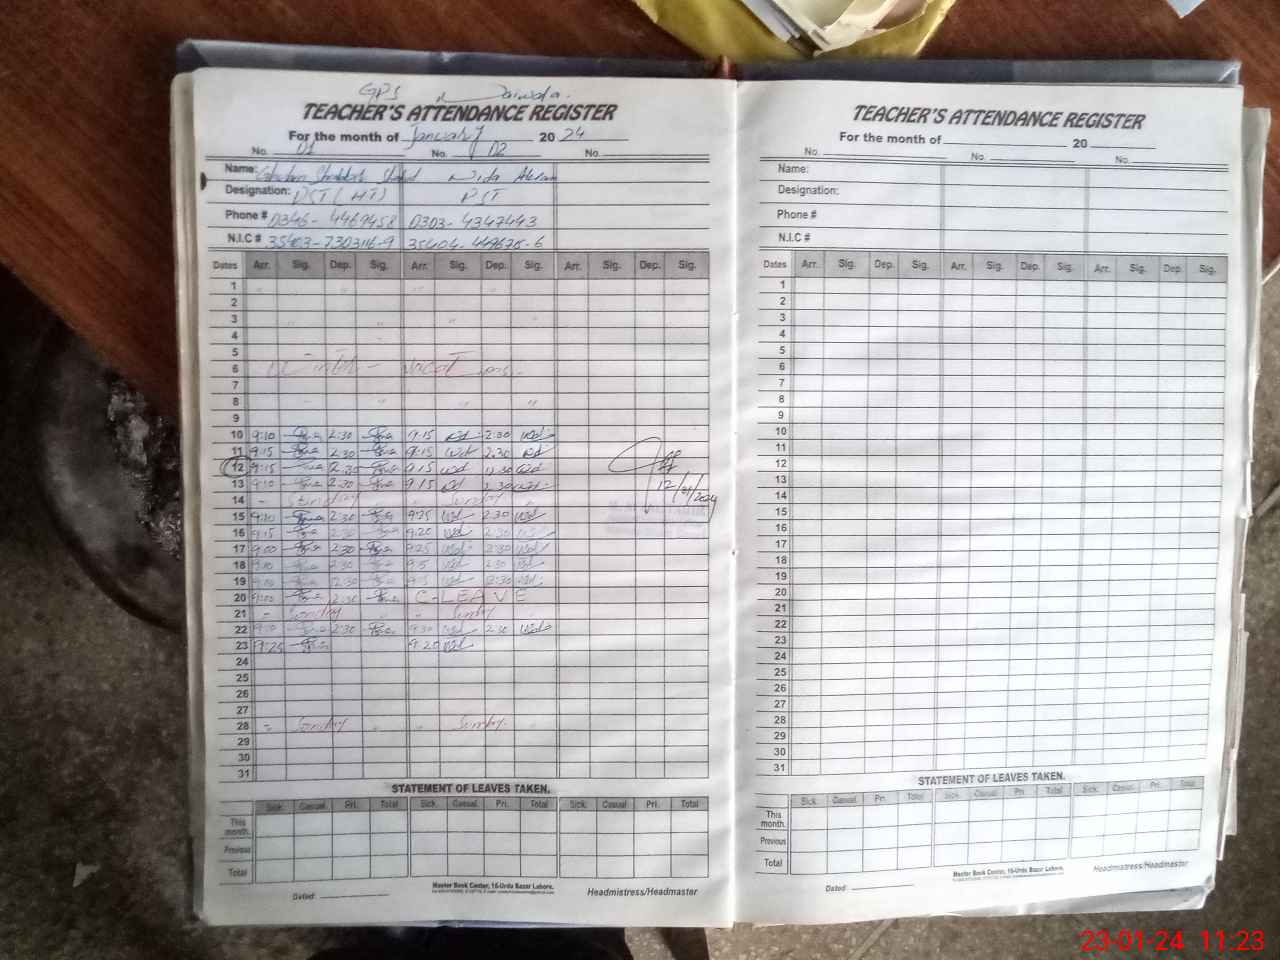 GPS
TEACHER'S ATTENDANCE REGISTER
For the month of January 20 24
No. 01 No. 02 No.
Name: Nida Akram
Designation: PST (HT) PST
Phone # 0346- 4469458 0303- 4347443
N.I.C # 35403-7303116-9 35404-449678-6
Dates Arr. Sig. Dep. Sig. Arr. Sig. Dep. Sig. Arr. Sig. Dep. Sig.
1
2
3
4
5
6 Winter Vacations
7
8
9
10 9:10 2:30 9:15 2:30
11 9:15 2:30 9:15 2:30
12 9:15 2:30 9:15 12:30
13 9:10 2:30 9:15 2:30
12/01/2024
14 - Sunday - Sunday
15 9:10 2:30 9:25 2:30
16 9:15 2:30 9:20 2:30
17 9:00 2:30 9:25 2:30
18 9:10 2:30 9:15 2:30
19 9:10 12:30 9:15 12:30
20 9:00 2:30 C-LEAVE
21 - Sunday - Sunday
22 9:10 2:30 9:30 2:30
23 9:25 9:20
24
25
26
27
28 - Sunday Sunday
29
30
31
STATEMENT OF LEAVES TAKEN.
Sick. Casual. Pri. Total Sick. Casual. Pri. Total Sick. Casual. Pri. Total
This month.
Previous
Total
Dated:
Master Book Center, 15-Urdu Bazar Lahore.
Headmistress/Headmaster
TEACHER'S ATTENDANCE REGISTER
For the month of 20
No. No. No.
Name:
Designation:
Phone #
N.I.C #
Dates Arr. Sig. Dep. Sig. Arr. Sig. Dep. Sig. Arr. Sig. Dep. Sig.
1
2
3
4
5
6
7
8
9
10
11
12
13
14
15
16
17
18
19
20
21
22
23
24
25
26
27
28
29
30
31
STATEMENT OF LEAVES TAKEN.
Sick. Casual. Pri. Total Sick. Casual. Pri. Total Sick. Casual. Pri. Total
This month.
Previous
Total
Dated:
Master Book Center, 15-Urdu Bazar Lahore.
Headmistress/Headmaster
23-01-24 11:23